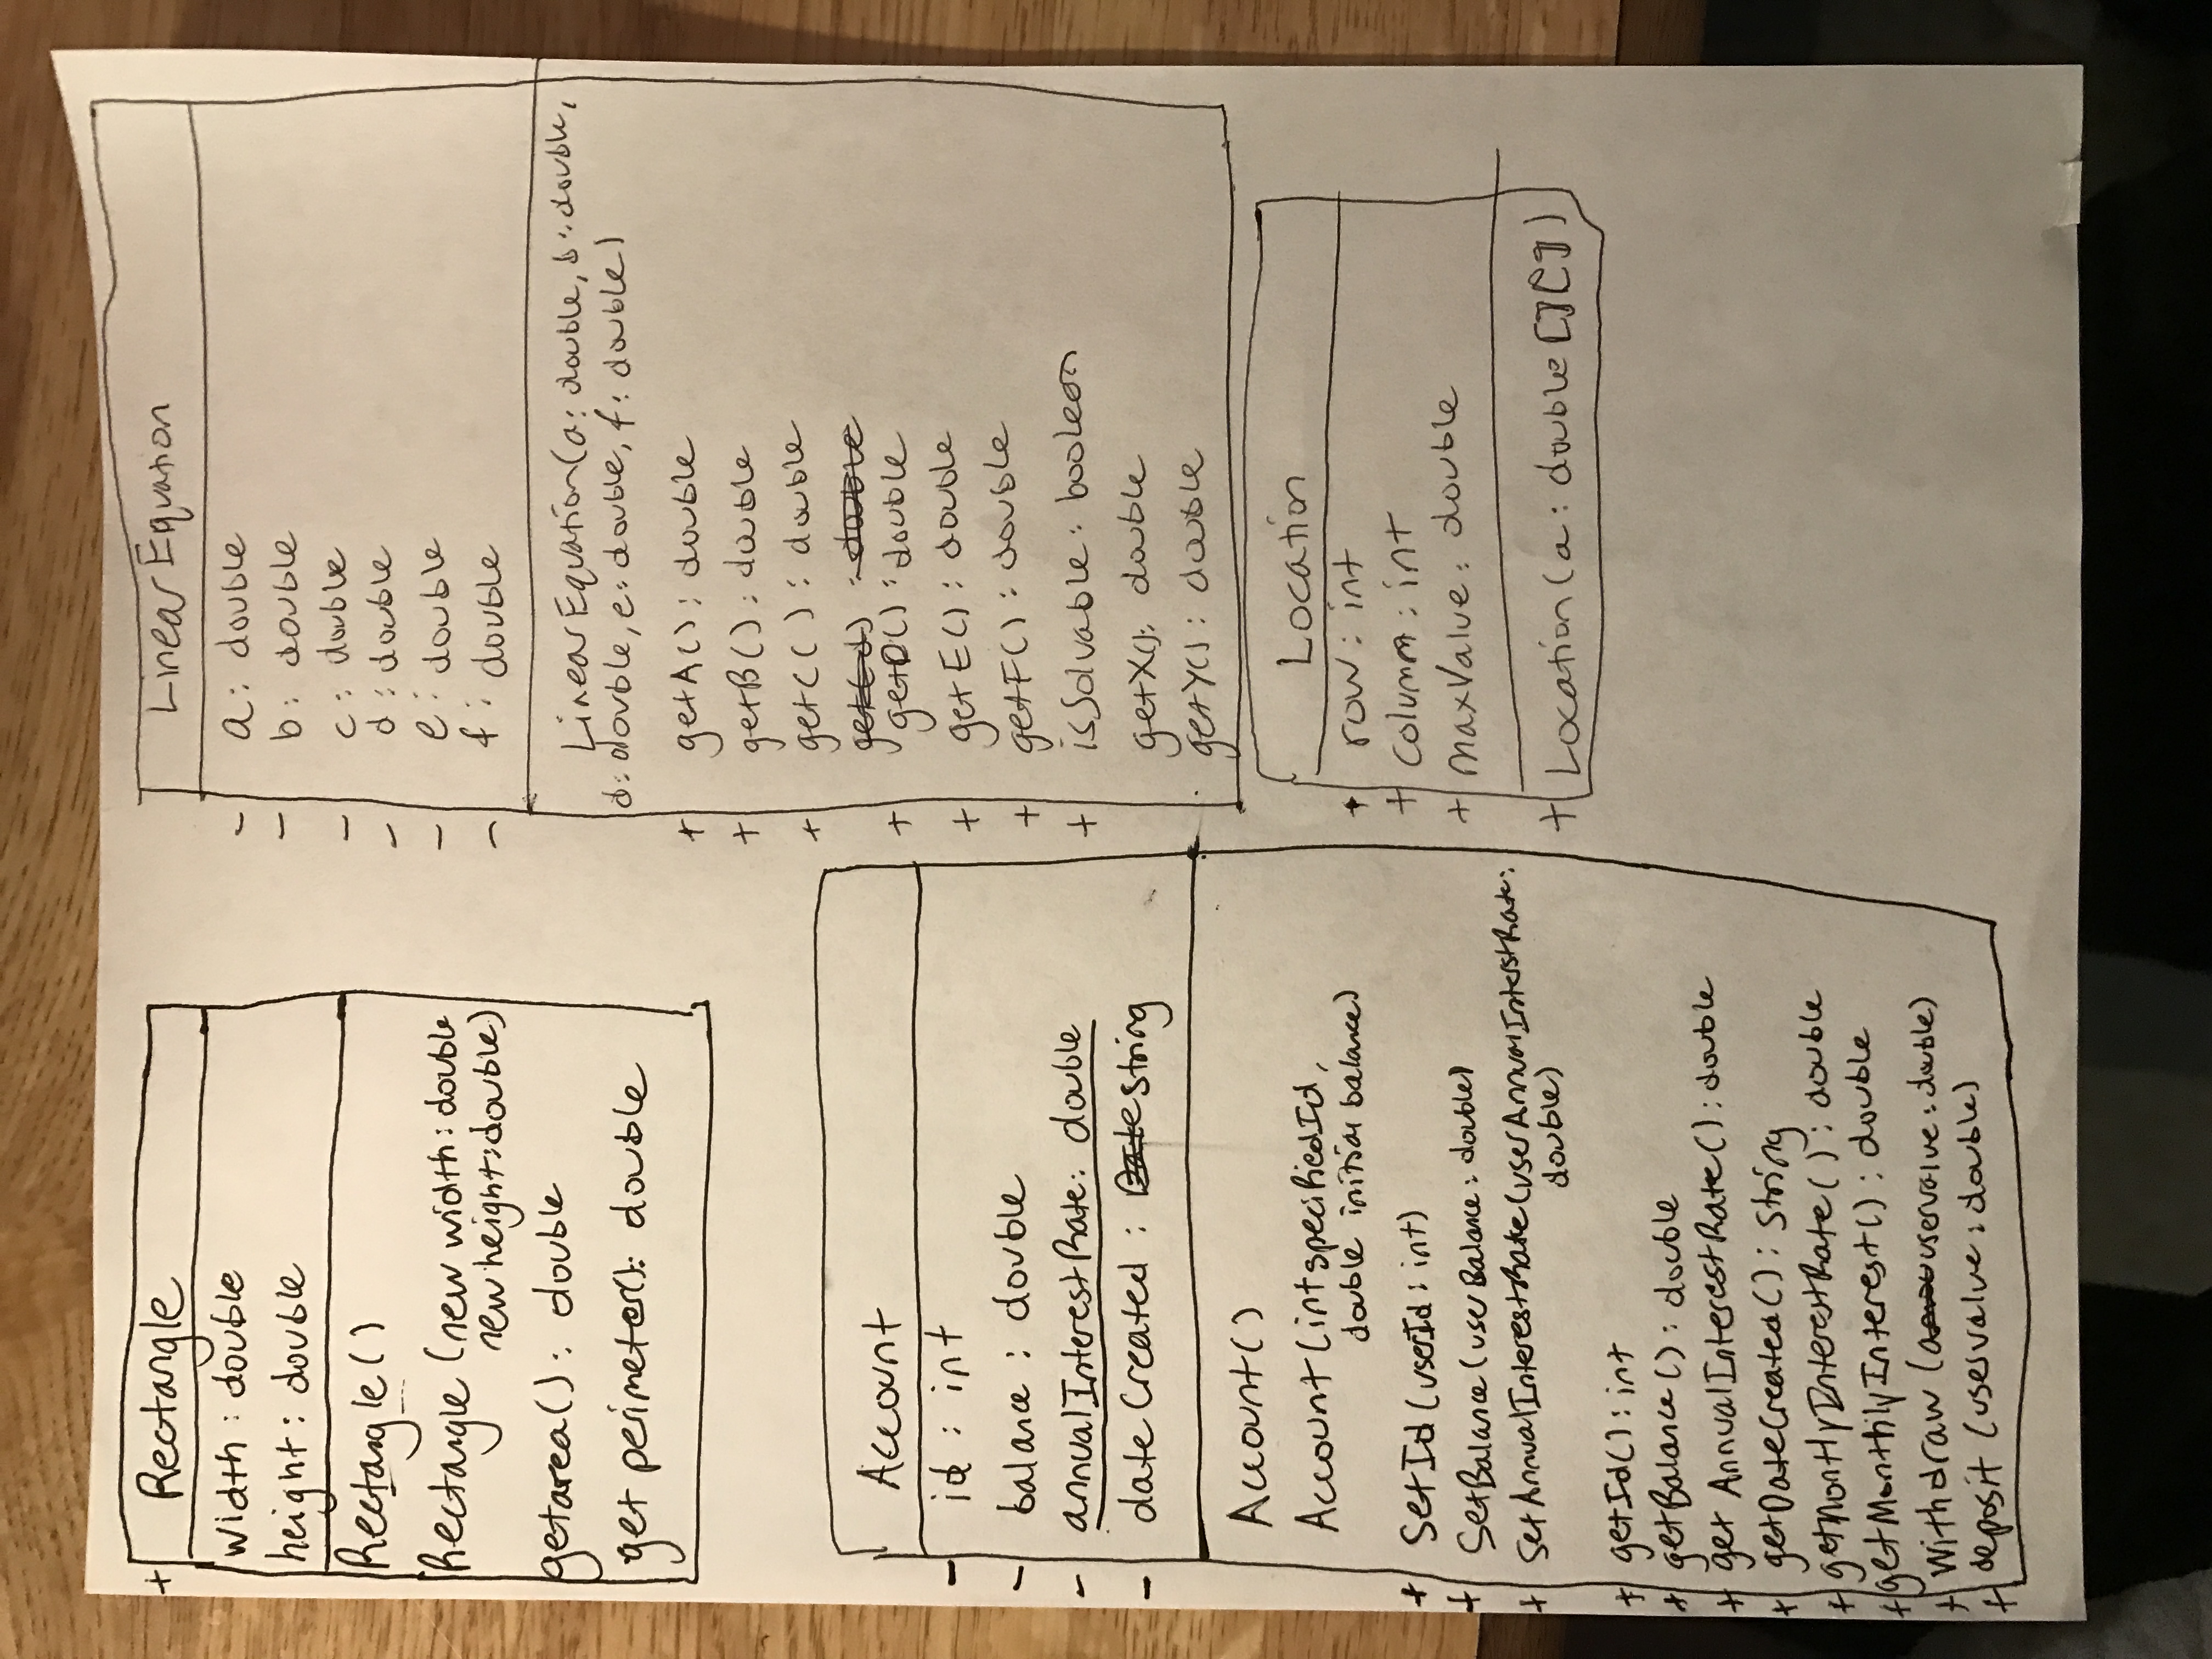 + Rectangle
width : double
height : double
Rectangle ( )
Rectangle (new width : double
new height : double)
getarea() : double
get perimeter() : double
Account
- id : int
- balance : double
- annualInterestRate : double
- dateCreated : Date string
Account()
Account (int specifiedId,
double initial balance)
+ SetId (userId : int)
+ SetBalance (userBalance : double)
+ SetAnnualInterestRate (userAnnualInterstRate :
double)
+ getId() : int
+ getBalance() : double
+ get AnnualInterestRate() : double
+ getDateCreated() : String
+ getMontlyInterestRate() : double
+ getMonthilyInterest() : double
+ Withdraw (uservalue : double)
+ deposit (uservalue : double)
LinearEquation
- a : double
- b : double
- c : double
- d : double
- e : double
- f : double
LinearEquation(a : double, b : double,
d : double, e : double, f : double)
+ getA() : double
+ getB() : double
+ getC( ) : double
: double
+ getD() : double
+ getE() : double
+ getF() : double
+ isSolvable : boolean
getX() : double
getY() : double
Location
+ row : int
+ column : int
+ maxValue : double
+ Location (a : double [][])